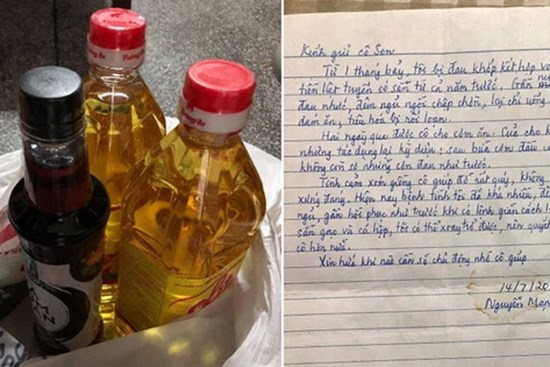 Tường An
Kính gửi cô Sen
Từ 1 tháng bảy, tôi bị đau khớp kết hợp
tiền liệt tuyến có sẵn từ cả năm trước. Gần
đau nhức, đêm ngủ ngồi chập chờn, lại chỉ uống
ăn, tiêu hóa bị rối loạn.
Hai ngày qua được cô cho cơm ăn. Của cho
những tác dụng lại kỳ diệu: sau bữa cơm đầu
không còn có những cơn đau như trước.
Tình cảm xóm giềng cô giúp đỡ rất quý, không
xứng đáng. Hiện nay bệnh tình tôi đã khá nhiều,
ngủ, gần hồi phục như trước khi có lệnh giãn cách
sẵn gạo và cá hộp, tôi có thể xoay trở được, nên
cô hơn nữa.
Xin hứa khi nào cần sẽ chủ động nhờ cô giúp
14/7/20
Nguyễn Mạn